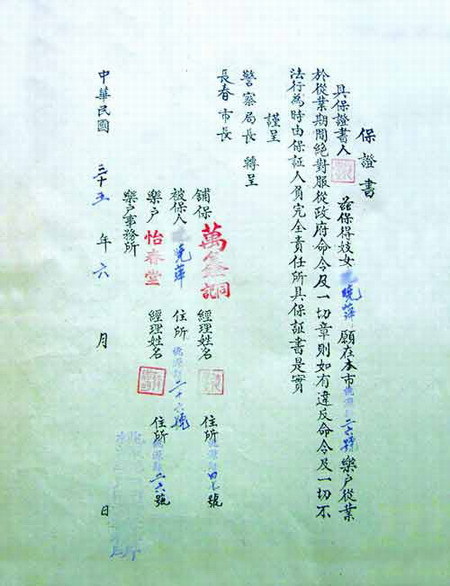 保證書
具保證書人 茲保得妓女 曉萍 願在本市 二十六號 樂戶從業
於從業期間絕對服從政府命令及一切章則如有違反命令及一切不
法行為時由保証人負完全責任所具保証書是實
謹呈
警察局長 轉呈
長春市長
舖保 萬鑫同記 經理姓名 住所 號
被保人 曉萍 住所 二十六號
樂戶 怡春堂 經理姓名 住所 二六號
樂戶事務所
中華民國 三十五 年 六 月 日